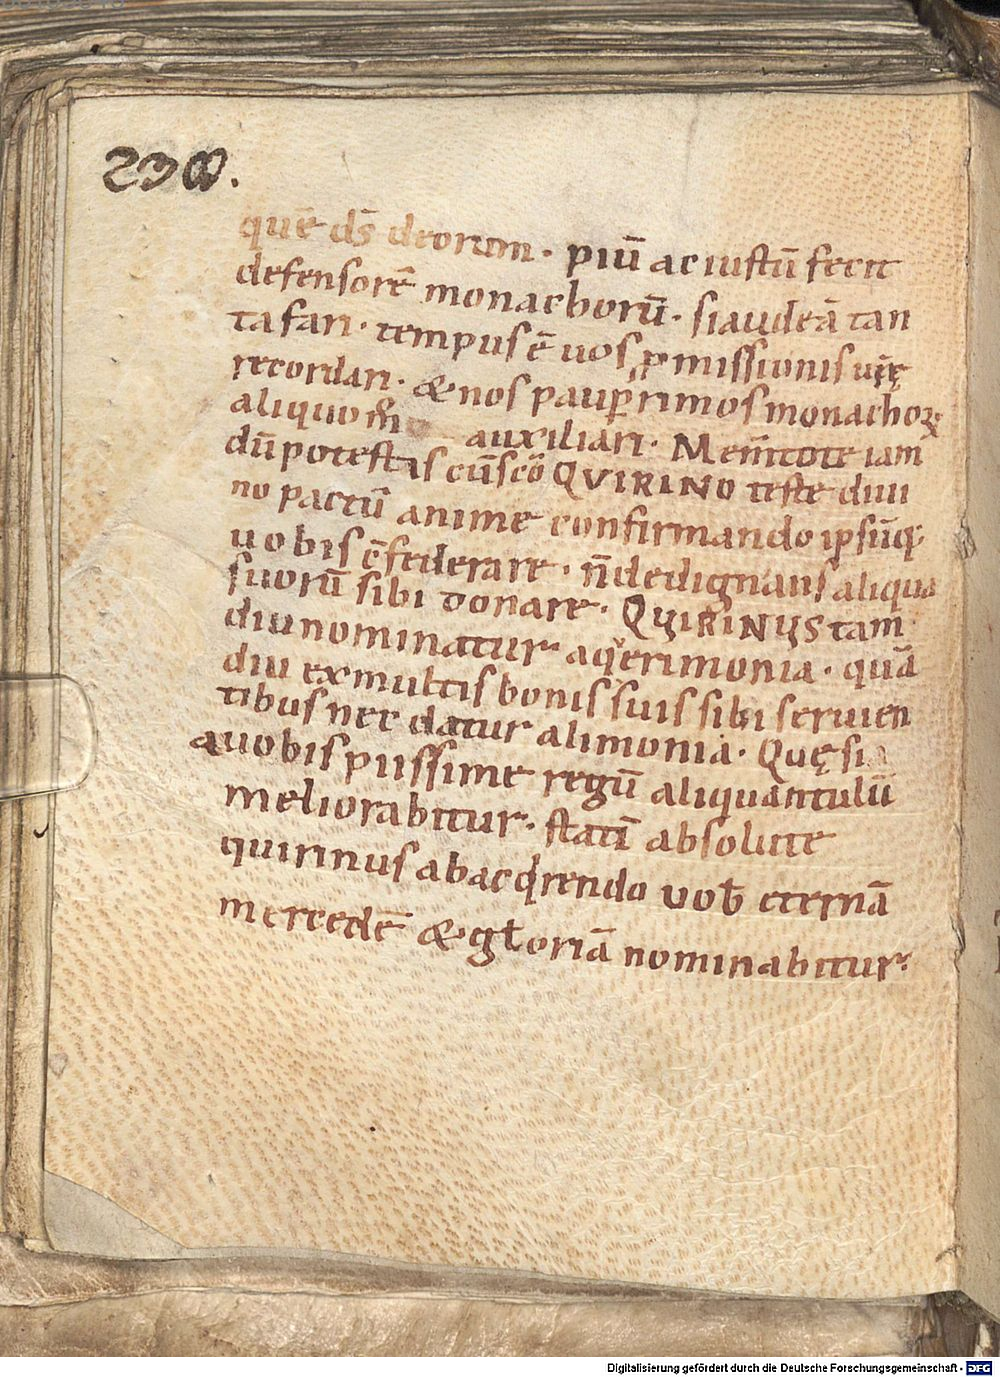 quē ds̄ deorum · piū ac iustū fecit
defensorē monachorū · si audeā tan
ta fari · tempus ē uos p̱missionis ur̄ę
recordari · & nos paup̱rimos monachoꝝ
aliquo m̊ auxiliari · Mem̄tote iam
dū potestis cū sc̄o QVIRINO teste diui
no pactū anime confirmando ip̱sūq;
uobis c̄federare · n̄ dedignans aliqua
suorū sibi donare · QVIRINVS tam
diu nominatur a q̇rerimonia · quā
diu ex multis bonis suis sibi seruien
tibus nec datur alimonia · Quę si
a uobis piissime regū aliquantulū
meliorabitur · statī absolute
quirinus ab acq̇rendo uob̄ eternā
mercedē & gl̄oriā nominabitur ·
Digitalisierung gefördert durch die Deutsche Forschungsgemeinschaft - DFG